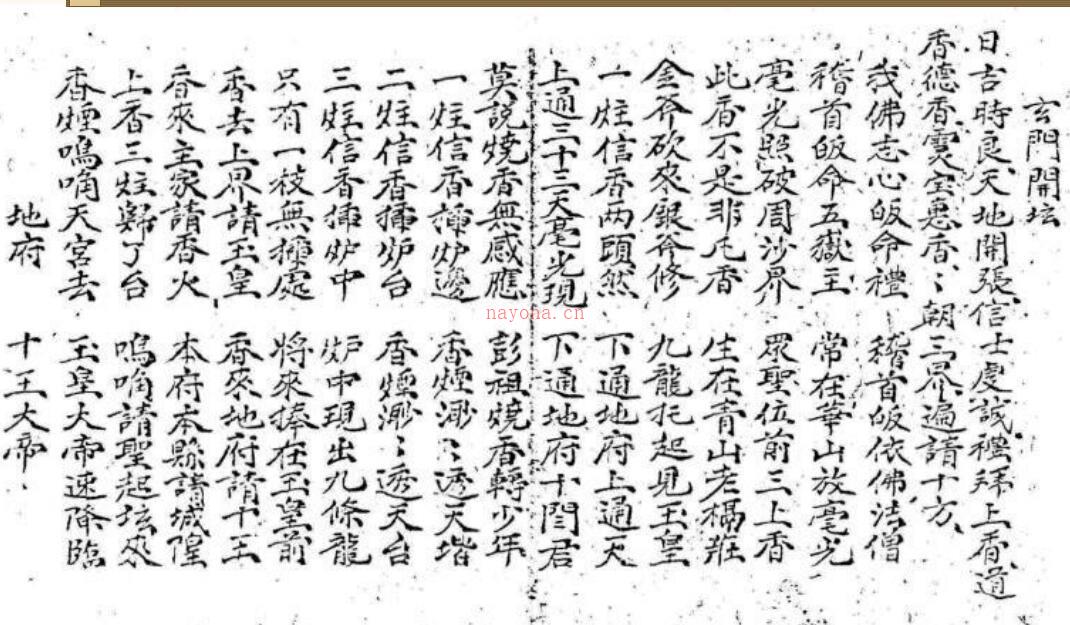 玄門開坛
日吉時良天地開張信士虔誠禮拜上香道
香德香靈宝惠香〻朝三界遍請十方
我佛志心皈命禮 稽首皈依佛法僧
稽首皈命五嶽主 常在華山放毫光
毫光照破周沙界 眾聖位前三上香
此香不是非凡香 生在青山老樠粧
金斧砍來銀斧修 九龍托起見玉皇
一炷信香两頭然 下通地府上通天
上通三十三天毫光現 下通地府十閆君
莫説燒香無感應 彭祖燒香轉少年
一炷信香插炉邊 香煙渺〻透天堦
二炷信香插炉台 香煙渺〻透天台
三炷信香插炉中 炉中現出九條龍
只有一枝無插處 將來捧在玉皇前
香去上界請玉皇 香來地府請十王
香來主家請香火 本府本縣請城隍
上香三炷歸了台 鳴角請聖起坛來
香煙鳴角天宮去 玉皇大帝速降臨
地府 十王大帝
nayona.cn